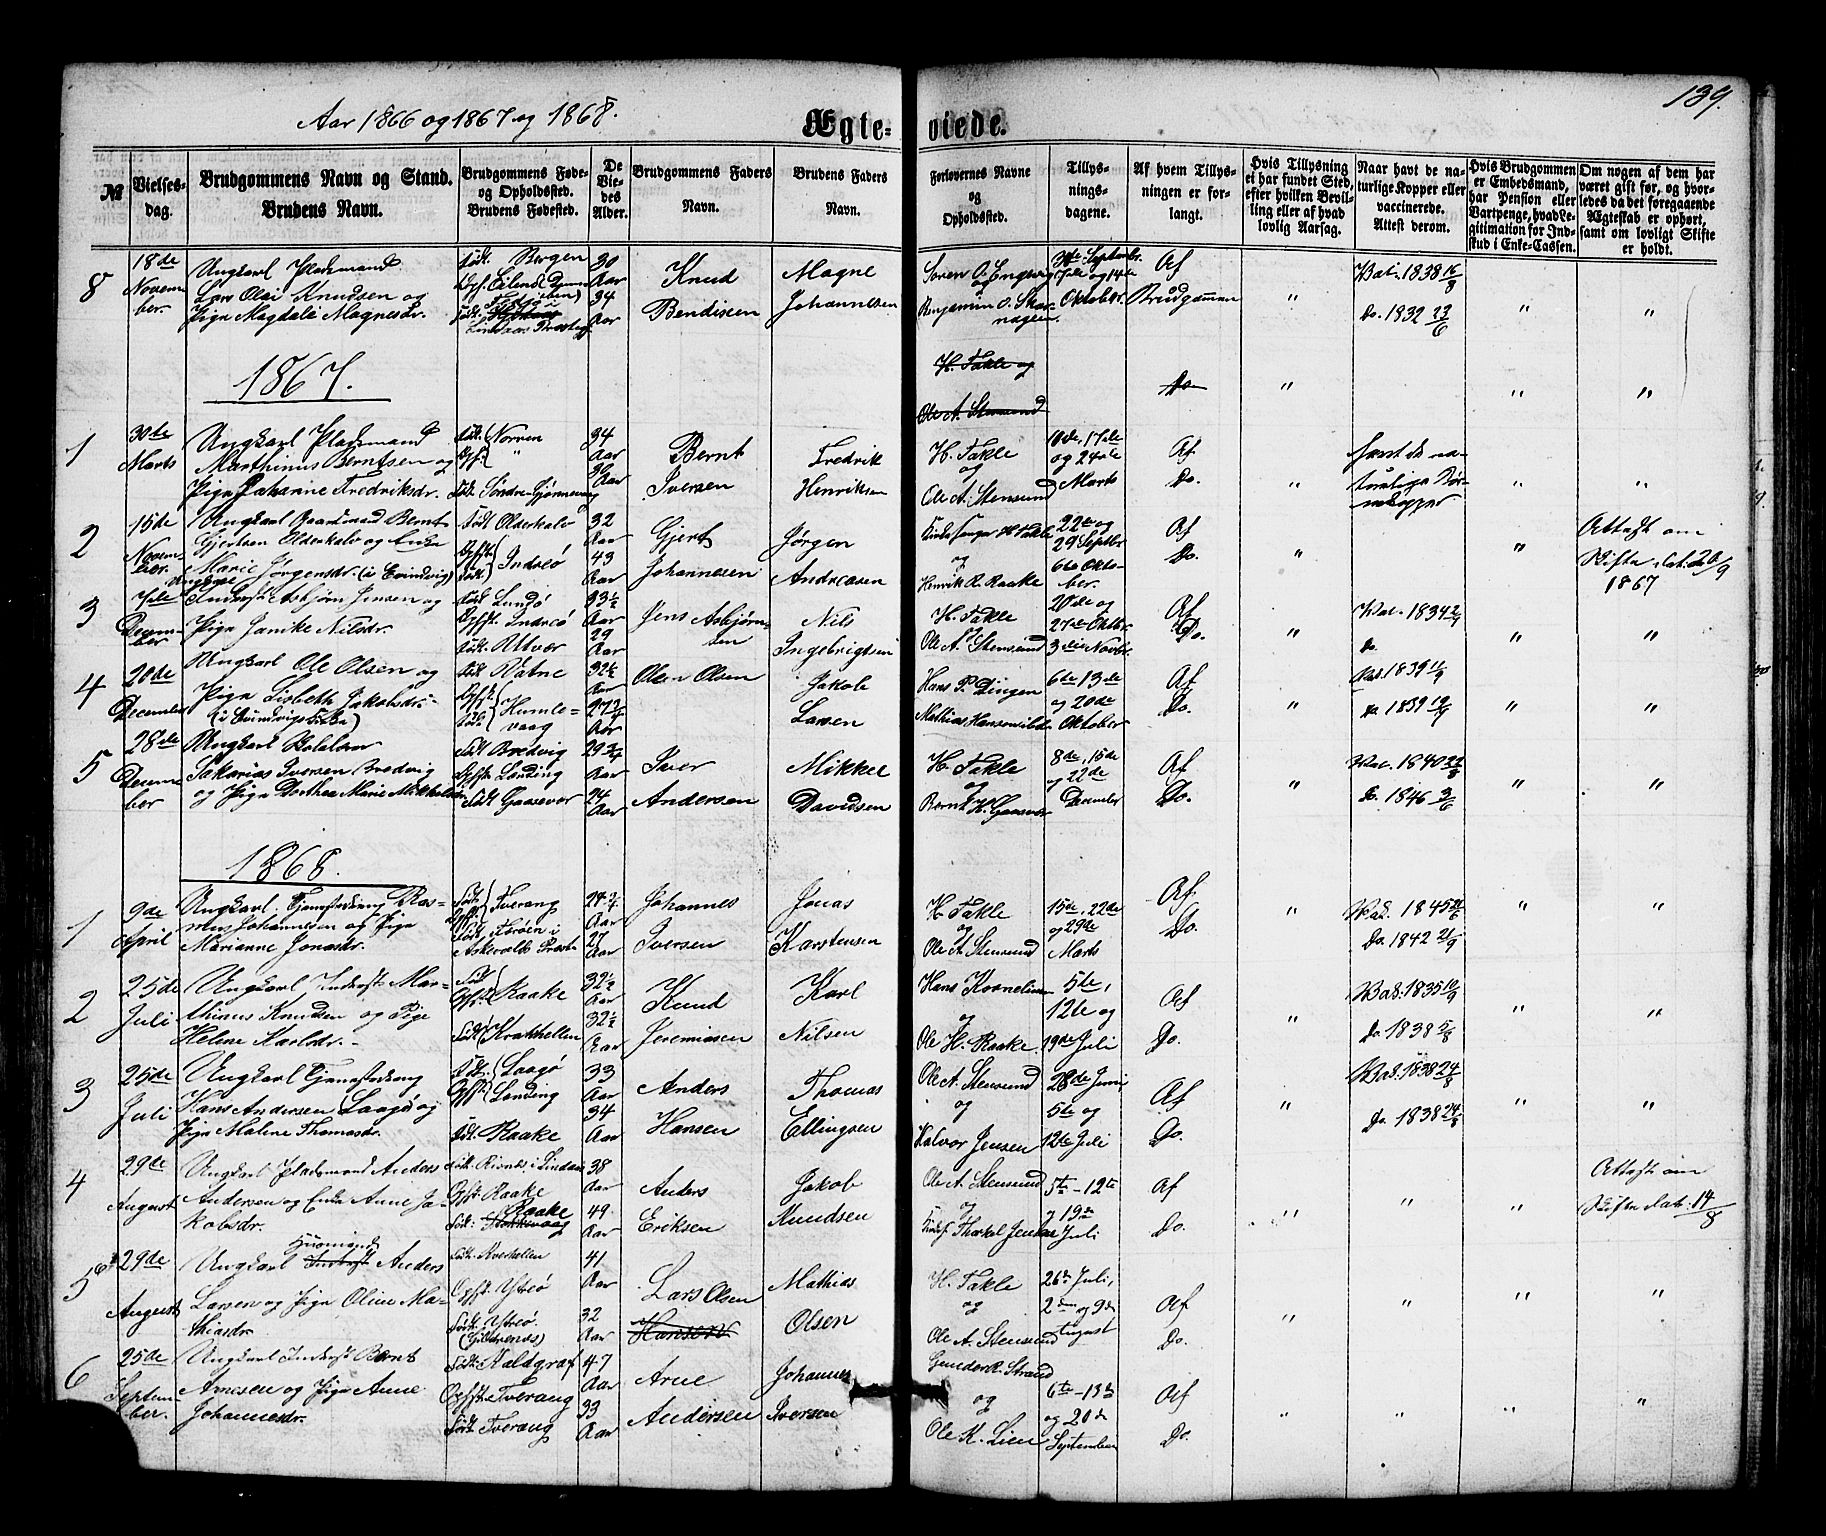 Aar 1866 og 1867 og 1868.
Ægte-
viede.
139.
№
Vielses-
dag.
Brudgommens Navn og Stand.
Brudens Navn.
Brudgommens Føde-
og Opholdssted.
Brudens Fødested.
De
Vie-
des
Alder.
Brudgommens Faders
Navn.
Brudens Faders
Navn.
Forlovernes Navne
og
Opholdssted.
Tillys-
nings-
dagene.
Af hvem Tillys-
ningen er for-
langt.
Hvis Tillysning
ei har fundet Sted,
efter hvilken Bevil-
ling eller af hvad
lovlig Aarsag.
Naar havt de na-
turlige Kopper eller
vaccinerede.
Attest derom.
Hvis Brudgommen
er Embedsmand,
har Pension eller
Vartpenge, hvad Le-
gitimation for Ind-
skud i Enke-Cassen.
Om nogen af dem har
været gift før, og hvor-
ledes da det foregaaende
Ægteskab er ophørt,
samt om lovligt Skifte
er holdt.
8
18de
Novem-
ber.
Ungkarl Pladsmand
Lars Olai Knudsen og
Pige Magdali Magnesdr.
Født. Bergen
30
Aar
34
Aar
Knud
Bendixen
Magne
Johannesen
og
Benjamin O.
7de og 14de
Oktober.
Af
Brudgommen
"
Vac. 1838 16/8
Do. 1832 23/6
"
"
1867.
H. Takle og
Ole A. Stensund
Do
"
"
"
1
30te
Marts
Ungkarl Pladsmand
Marthinus Berntsen og
Pige Johanne Fredriksdr.
Født. Norven
Opf. "
Født. Søndre
34
Aar
30
Aar
Bernt
Iversen
Fredrik
Henriksen
H. Takle
og
Ole A. Stensund
10de, 17de
og 24de
Marts
Af
Do.
"
havt de na-
turlige Bør-
nekopper
"
"
2
15de
Novem-
ber.
Ungkarl Gaardmand Bernt
Gjertsen Olderkalv og Enke
Marie Jørgensdr. (i Evindvig)
Født Olderkalv
Opfst. Indreö
Født.
32
Aar
43
Aar
Gjert
Johannesen
Jørgen
Andreasen
H Takle
og
Henrik R. Raake
22de og
29 Septbr
6te Okto-
ber.
Af
Do.
"
"
Attest om
Skifte dat. 26/9
1867
3
7de
Decem-
ber
Ungkarl
Inderst Asbjørn Jensen og
Pige Janike Nilsdr.
Født. Lundö
Opfst. Indreö
Født. Utvær
33½
Aar
29
Aar
Jens Asbjørn-
sen
Nils
Ingebrigtsen
H. Takle
og
Ole A. Stensund
20de og
27de Oktbr.
3die Novbr.
Af
Do.
"
Vac. 1834 2/9
do.
"
"
4
20de
December
Ungkarl Ole Olsen og
Pige Lisbeth Jakobsdr.
Født. Vatne
Opfst. Humle-
Født. vaag
32½
Aar
27¾
Aar
Olsen Olsen
Jakob
Larsen
Hans P. Dingen
6te 13de
og 20de
Oktober
Af
Do.
"
Vac. 1839 11/9
Do 1839 12/9
"
"
5
28de
Decem-
ber
Ungkarl
Sakarias Iversen Bredvig
og Pige Dorthea Marie Mikkelsdr.
Født Bredvig
Opfst. Landing
Født Gaasevær
29¾
Aar
24
Aar
Iver
Andersen
Mikkel
Davidsen
H. Takle
og
8de, 15de
og 22de
December
Af
Do.
"
Vac. 1840 22/8
Do. 1846 3/6
"
"
1868.
1
9de
April
Ungkarl. Tjenestedreng Ras-
mus Johannesen og Pige
Marianne Jonasdr.
Født Tverang
Opfst.
Født. Færøen i
Askevolds Præst.
Aar
27
Aar
Johannes
Iversen
Jonas
Karstensen
H. Takle
og
Ole A. Stensund
15de, 22de
og 29de
Marts
Af
Do.
"
Vac. 1845
Do. 1842 21/9
"
"
2
25de
Juli
Ungkarl Inderst Mar-
thinus Knudsen og Pige
Helene Karlsdr.
Født
Opfst. Raake
Født Krakhellen
32½
Aar
32½
Aar
Knud
Jeremiasen
Karl
Nilsen
Hans Kornelius
og
Ole H. Raake
5te,
12te og
19de Juli
Af
Do.
"
Vac. 1835 10/9
Do 1838 5/8
"
"
3
25de
Juli
Ungkarl Tjenestedreng
Hans Andersen Laagø og
Pige Malene Thomasdr.
Født. Laagö
Opfst Landing
Født. Raake
33
Aar
34
Aar
Anders
Hansen
Thomas
Ellingsen
Ole A. Stensund
og
Halvor Jensen
28de Juni
5te og
12te Juli
Af
Do.
"
Vac. 1838 24/8
Do. 1838 24/8
"
"
4
29de
August
Ungkarl Pladsmand Anders
Andersen og Enke Anne Ja-
kobsdr.
Opfst. Raake
Raake
Født:
38
Aar
49.
Aar
Anders
Eriksen
Jakob
Knudsen
Ole A. Stensund
og
5te - 12te
og 19de
Juli
Af
Do.
"
"
"
Attest om
Skifte dat. 14/8
5
29de
August
Huusmand
Ungkarl Inderst Anders
Larsen og Pige Oline Ma-
thiasdr.
Født. Kverhellen
Opfst. Ytreö
Født. Ytreö.
41
Aar
32
Aar
Lars Olsen
Hansen
Mathias
Olsen
H. Takle
og
Ole A. Stensund
26de Juli,
2den og 9de
August
Af
Do.
"
"
"
"
6
25de
Septem-
ber.
Ungkarl Inderst Bernt
Arnesen og Pige Anne
Johannesdr.
Født. Kaldgraf
Opfst. Tverang
Født Tverang
47
Aar
33
Aar
Arne
Andersen
Johannes
Iversen
Gunder R. Strand
og
Ole K. Lien
6te - 13de
og 20de
September
Af
Do.
"
"
"
"